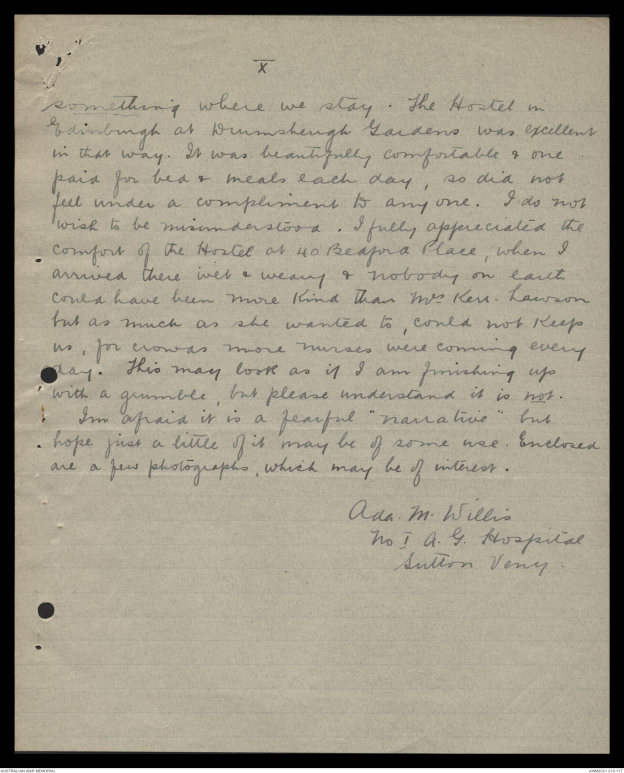 X
something where we stay. The Hostel in
Edinburgh at Drumsheugh Gardens was excellent
in that way. It was beautifully comfortable & one
paid for bed & meals each day, so did not
feel under a compliment to any one. I do not
wish to be misunderstood. I fully appreciated the
comfort of the Hostel at 40 Bedford Place, when I
arrived there wet & weary & nobody on earth
could have been more kind than Mrs Kerr-Lawson
but as much as she wanted to, could not keep
us, for crowds more nurses were coming every
day. This may look as if I am finishing up
with a grumble, but please understand it is not.
I'm afraid it is a fearful "narrative" but
hope just a little of it may be of some use. Enclosed
are a few photographs, which may be of interest.
Ada. M. Willis
No I A. G. Hospital
Sutton Veny.
AUSTRALIAN WAR MEMORIAL
AWM2021.219.117